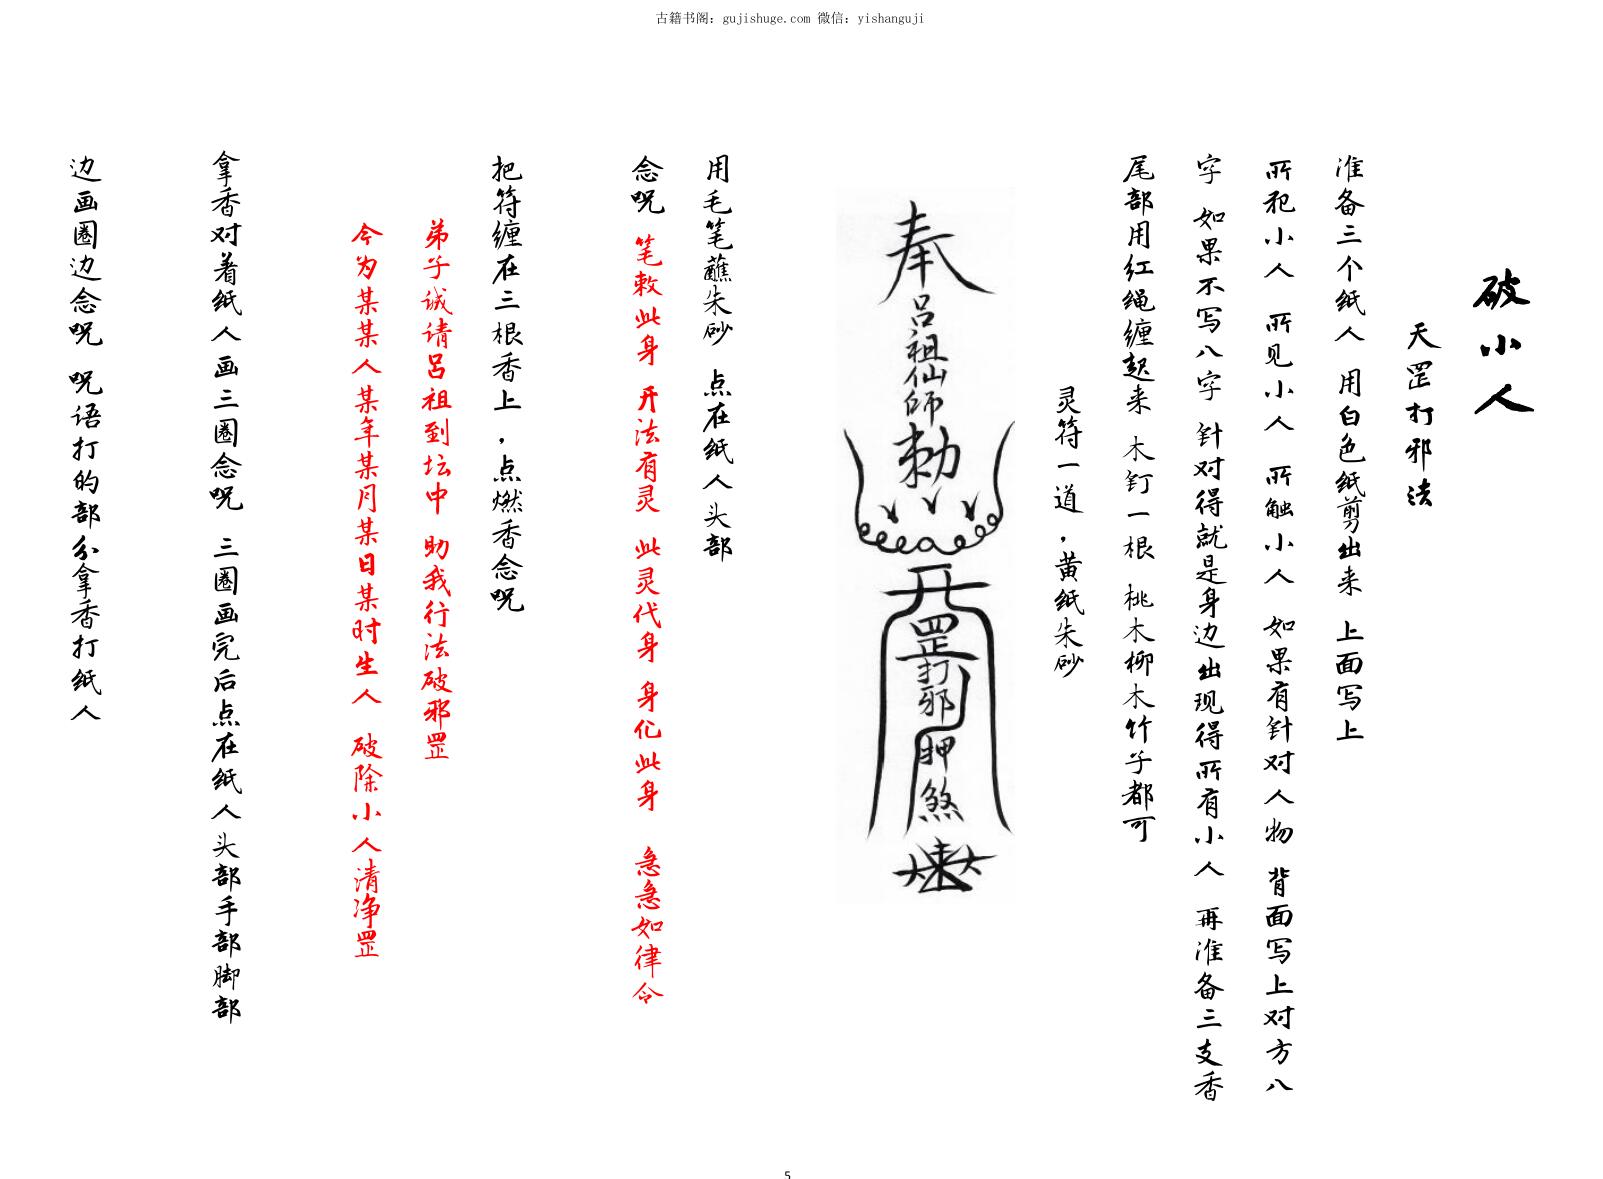 古籍书阁：gujishuge.com 微信：yishanguji
破小人
天罡打邪法
准备三个纸人 用白色纸剪出来 上面写上
所犯小人 所见小人 所触小人 如果有针对人物 背面写上对方八
字 如果不写八字 针对得就是身边出现得所有小人 再准备三支香
尾部用红绳缠起来 木钉一根 桃木柳木竹子都可
灵符一道，黄纸朱砂
奉吕祖仙師勅
罡打邪押煞
用毛笔蘸朱砂 点在纸人头部
念咒 笔敕此身 开法有灵 此灵代身 身化此身 急急如律令
把符缠在三根香上，点燃香念咒
弟子诚请吕祖到坛中 助我行法破邪罡
今为某某人某年某月某日某时生人 破除小人清净罡
拿香对着纸人画三圈念咒 三圈画完后点在纸人头部手部脚部
边画圈边念咒 咒语打的部分拿香打纸人
5